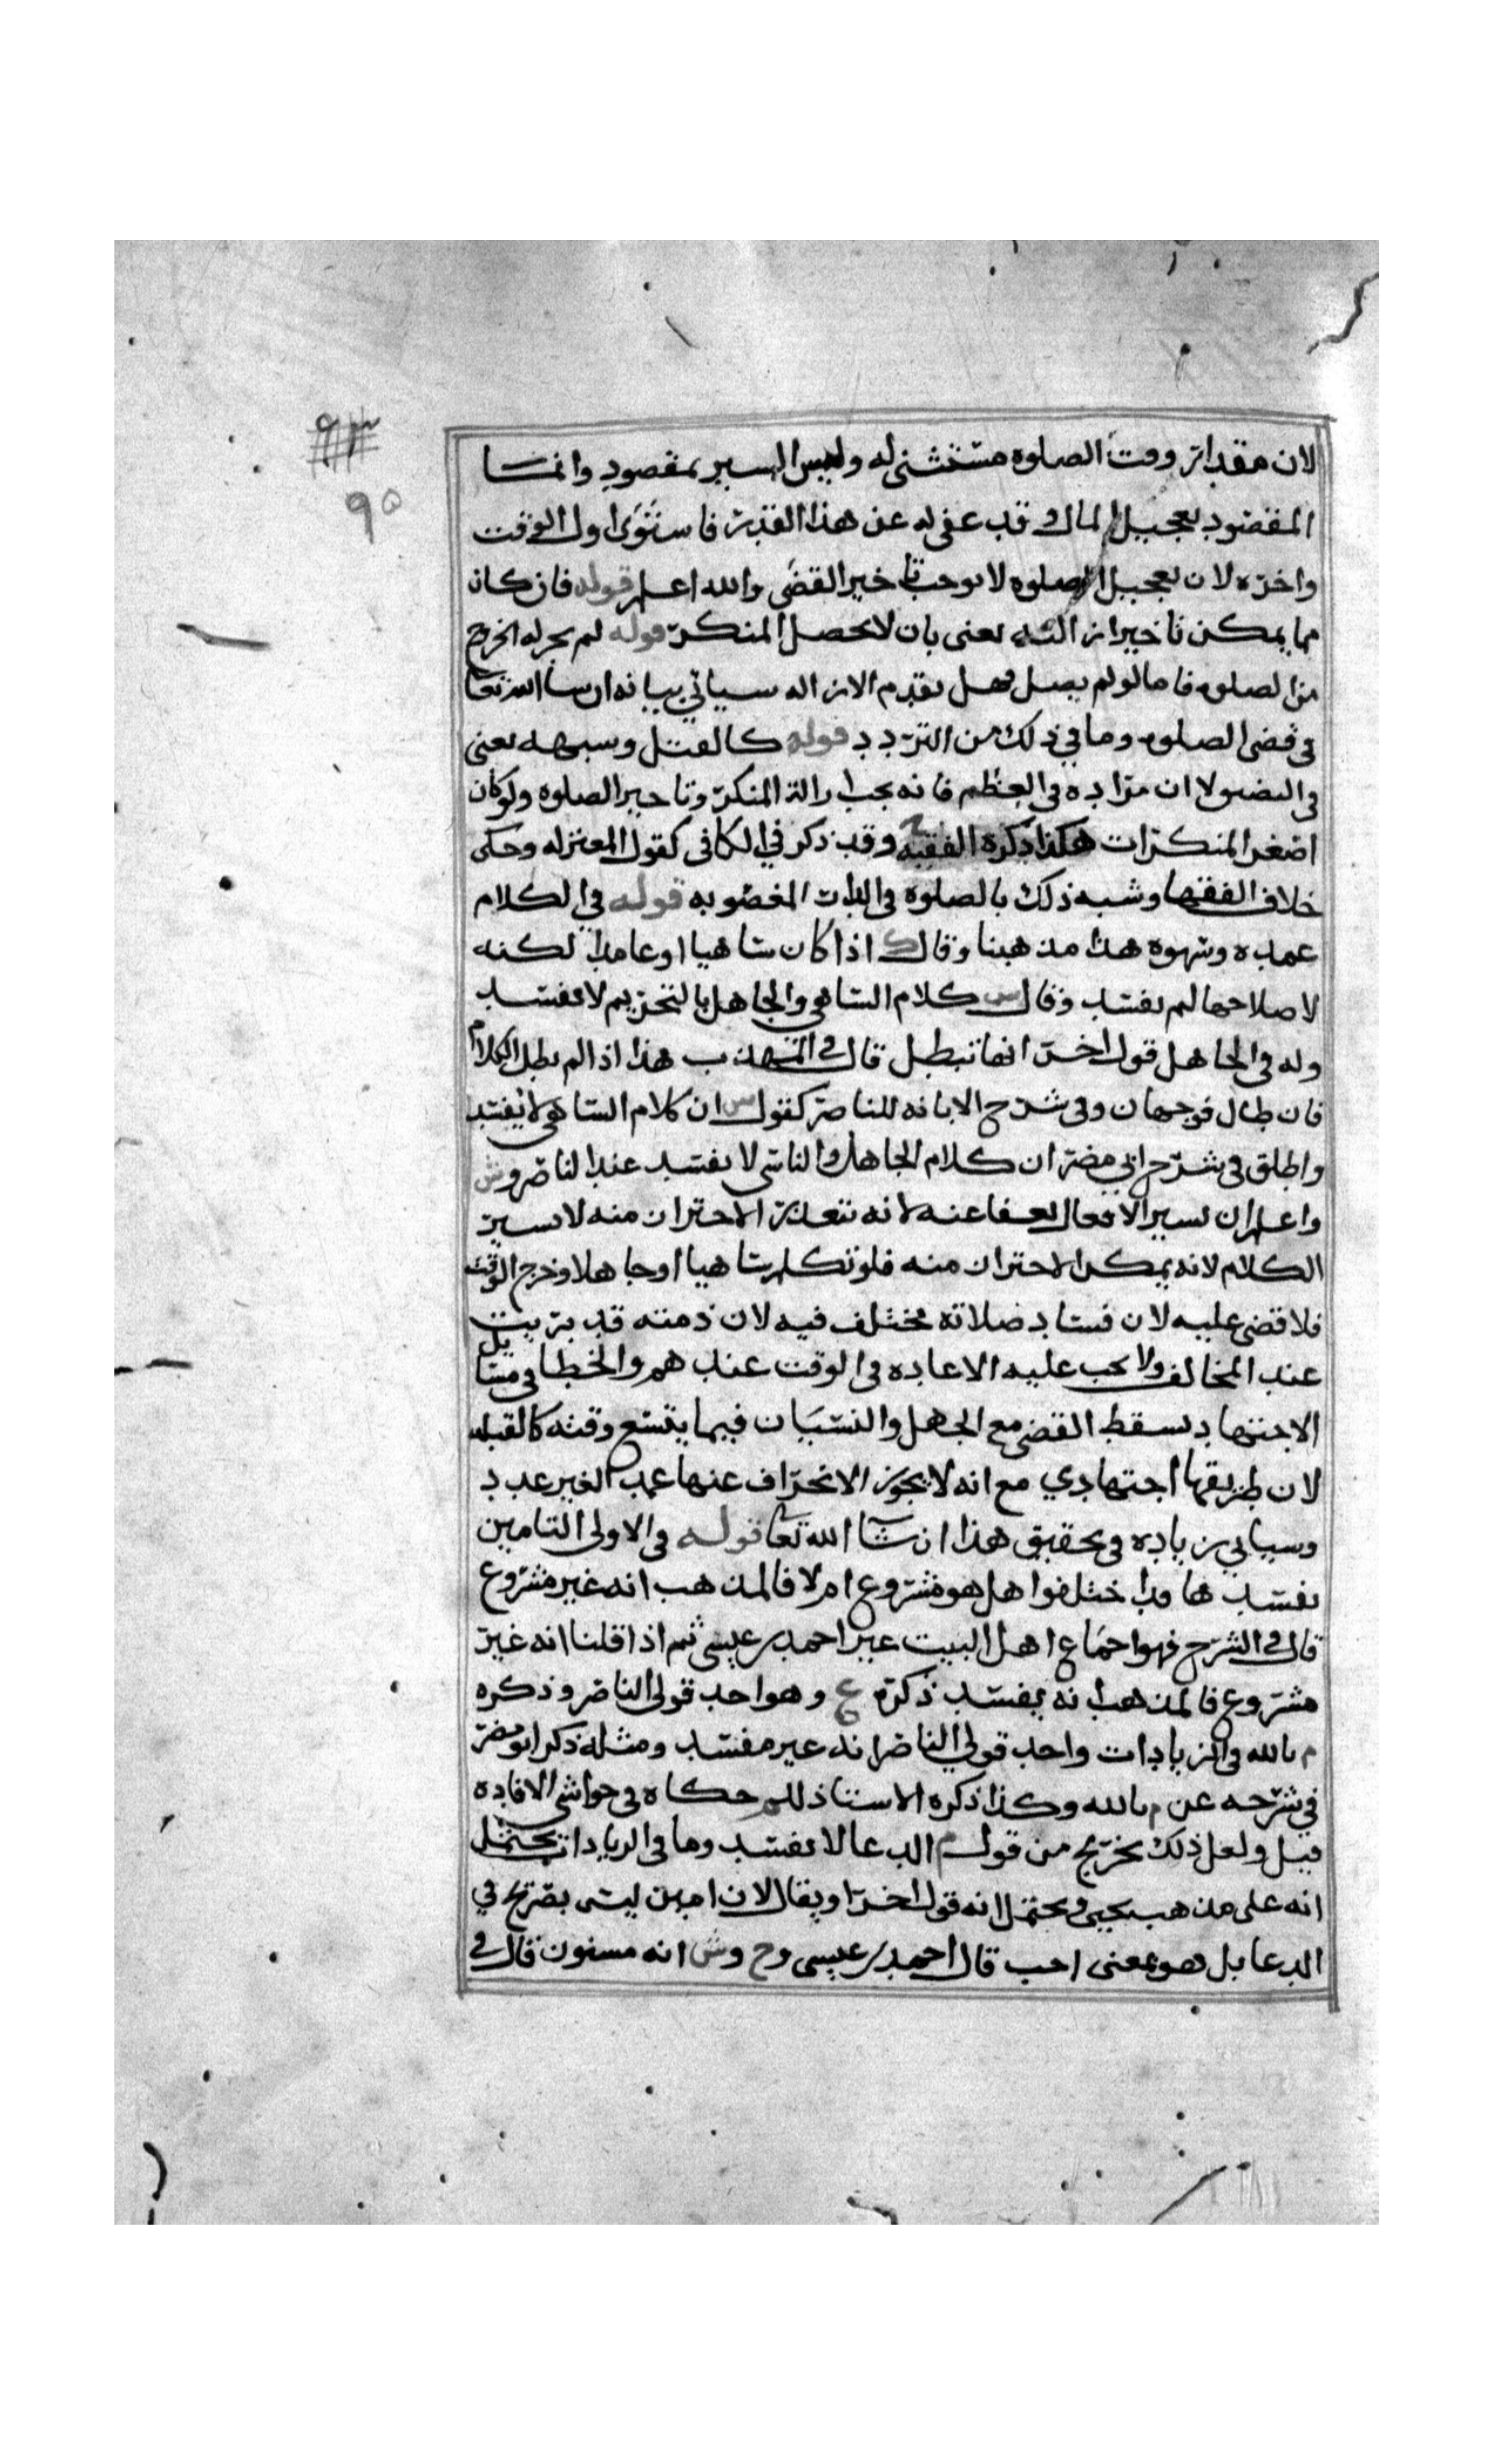 ٩٣
٩٥
لان مقدار وقت الصلوه مستثنى له وليس السير بمقصود وانما
المقصود تعجيل المال وقد عفي له عن هذا القدر فاستوى اول الوقت
واخره لان تعجيل الصلوه لا يوجب تاخير القضى والله اعلم قوله فان كان
مما يمكن تاخير ازالته يعنى بان لا يحصل المنكر قوله لم يجز له الخروج
من الصلوه فاما لو لم يصل فهل تقدم الازاله سياتي بيانه ان شا الله تعا
في قضى الصلوه وما في ذلك من التردد قوله كالقتل وشبهه يعنى
في ولا ان مراده في العظم فانه يجب ازالة المنكر وتاخير الصلوه ولو كان
اصغر المنكرات هكذا ذكره الفقيه ح وقد ذكر في الكافى كقول المعتزله وحكى
خلاف الفقها وشبه ذلك بالصلوه في الدار المغصوبه قوله في الكلام
عمده وسهوه هذا مذهبنا وقال ك اذا كان ساهيا او عامدا لكنه
لاصلاحها لم تفسد وقال س كلام الساهي والجاهل بالتحريم لا يفسد
وله في الجاهل قول اخر انها تبطل قال في المهذب هذا اذا لم يطل الكلام
فان طال فوجهان وفي شرح الابانه للناصر كقول س ان كلام الساهي لا يفسد
واطلق في شرح ابي مضر ان كلام الجاهل والناسي لا يفسد عند الناصر وش
واعلم ان يسير الافعال يعفا عنه لانه يتعذر الاحتراز منه لا يسير
الكلام لانه يمكن الاحتراز منه فلو تكلم ساهيا او جاهلا وخرج الوقت
فلا قضى عليه لان فساد صلاته مختلف فيه لان ذمته قد بريت
عند المخالف ولا يجب عليه الاعاده في الوقت عندهم والخطا في مسايل
الاجتهاد يسقط القضى مع الجهل والنسيان فيما يتسع وقته كالقبله
لان طريقها اجتهادي مع انه لا يجوز الانحراف عنها عمدا لغير عذر
وسياتي زياده في تحقيق هذا ان شا الله تعا قوله وفي الاولى التامين
يفسدها وقد اختلفوا هل هو مشروع ام لا فالمذهب انه غير مشروع
قال في الشرح فهو اجماع اهل البيت غير احمد بن عيسى ثم اذا قلنا انه غير
مشروع فالمذهب انه يفسد ذكره ع وهو احد قولي الناصر وذكره
م بالله في الزيادات واحد قولي الناصر انه غير مفسد ومثله ذكر ابو مضر
في شرحه عن م بالله وكذا ذكره الاستاذ حكاه في حواشي الافاده
قيل ولعل ذلك يخرج من قول م الدعا لا يفسد وما في الزيادات يحتمل
انه على مذهب يحيى ويحتمل انه قول اخر او يقال لان امين ليس بصريح في
الدعا بل هو بمعنى احب قال احمد بن عيسى وح وش انه مسنون قال في